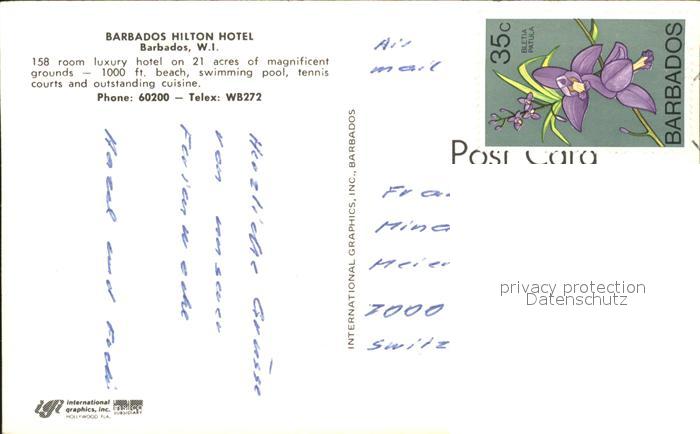 BARBADOS HILTON HOTEL
Barbados, W.I.
158 room luxury hotel on 21 acres of magnificent
grounds — 1000 ft. beach, swimming pool, tennis
courts and outstanding cuisine.
Phone: 60200 — Telex: WB272
Herzliche Grüsse
von unserer
Ferienwoche
und
international
graphics, inc.
HOLLYWOOD FLA.
SUBSIDIARY
INTERNATIONAL GRAPHICS, INC., BARBADOS
Air
mail
35c
BLETIA
PATULA
BARBADOS
Post Card
Mina
Meier
7000
Switz
privacy protection
Datenschutz